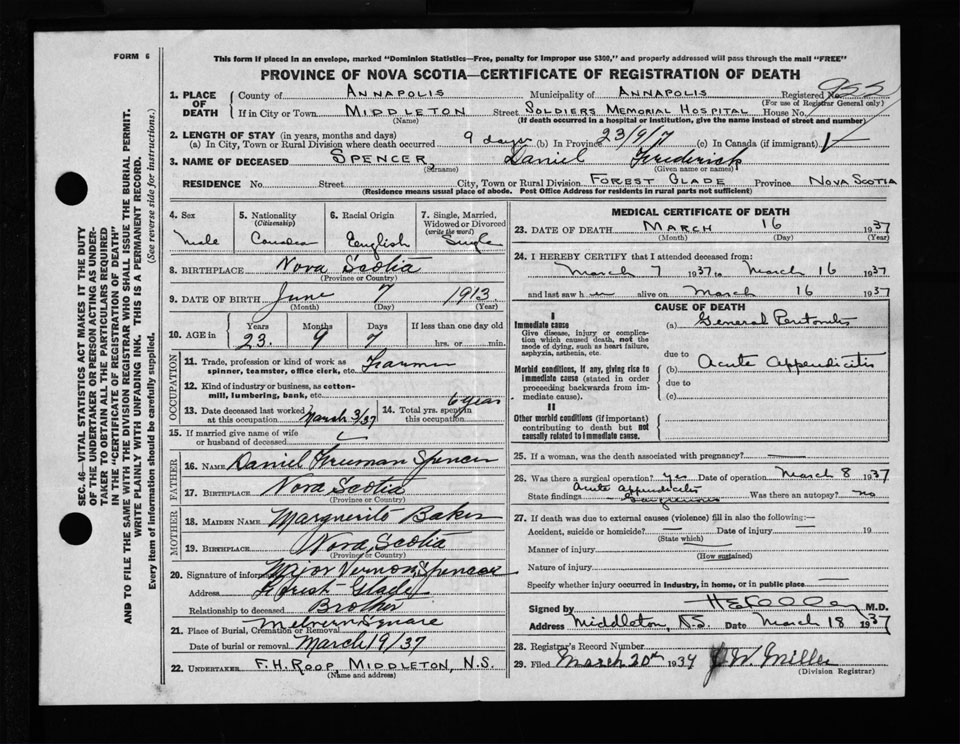 FORM 6
This form if placed in an envelope, marked "Dominion Statistics—Free, penalty for improper use $300," and properly addressed will pass through the mail "FREE"
PROVINCE OF NOVA SCOTIA—CERTIFICATE OF REGISTRATION OF DEATH
1. PLACE OF DEATH
County of ANNAPOLIS Municipality of ANNAPOLIS Registered No. 955
(For use of Registrar General only)
If in City or Town MIDDLETON Street SOLDIERS MEMORIAL HOSPITAL House No.
(Name) (If death occurred in a hospital or institution, give the name instead of street and number)
2. LENGTH OF STAY (in years, months and days)
(a) In City, Town or Rural Division where death occurred 9 days (b) In Province 23/9/7 (c) In Canada (if immigrant)
3. NAME OF DECEASED SPENCER, Daniel Frederick
(Surname) (Given name or names)
RESIDENCE No. Street City, Town or Rural Division FOREST GLADE Province NOVA SCOTIA
(Residence means usual place of abode. Post Office Address for residents in rural parts not sufficient)
4. Sex
Male
5. Nationality
(Citizenship)
Canadian
6. Racial Origin
English
7. Single, Married, Widowed or Divorced
(write the word)
Single
8. BIRTHPLACE Nova Scotia
(Province or Country)
9. DATE OF BIRTH June 7 1913
(Month) (Day) (Year)
10. AGE in
Years Months Days If less than one day old
23 9 7 hrs. or min.
OCCUPATION
11. Trade, profession or kind of work as spinner, teamster, office clerk, etc. Farmer
12. Kind of industry or business, as cotton-mill, lumbering, bank, etc.
13. Date deceased last worked at this occupation March 3/37
14. Total yrs. spent in this occupation 6 years
15. If married give name of wife or husband of deceased
FATHER
16. NAME Daniel Freeman Spencer
17. BIRTHPLACE Nova Scotia
(Province or Country)
MOTHER
18. MAIDEN NAME Marguerite Baker
19. BIRTHPLACE Nova Scotia
(Province or Country)
20. Signature of informant Major Vernon Spencer
Address Forest Glade
Relationship to deceased Brother
21. Place of Burial, Cremation or Removal Melvern Square
Date of burial or removal March 19/37
22. UNDERTAKER F. H. ROOP, MIDDLETON, N.S.
(Name and address)
MEDICAL CERTIFICATE OF DEATH
23. DATE OF DEATH MARCH 16 1937
(Month) (Day) (Year)
24. I HEREBY CERTIFY that I attended deceased from:
March 7 1937 to March 16 1937
and last saw him alive on March 16 1937
CAUSE OF DEATH
I
Immediate cause
Give disease, injury or complication which caused death, not the mode of dying, such as heart failure, asphyxia, asthenia, etc.
(a) General Peritonitis
due to
Morbid conditions, if any, giving rise to immediate cause (stated in order proceeding backwards from immediate cause).
(b) Acute Appendicitis
due to
(c)
II
Other morbid conditions (if important) contributing to death but not causally related to immediate cause.
25. If a woman, was the death associated with pregnancy?
26. Was there a surgical operation? yes Date of operation March 8 1937
State findings Acute Appendicitis Was there an autopsy? no
27. If death was due to external causes (violence) fill in also the following:—
Accident, suicide or homicide? Date of injury 19
(State which)
Manner of injury
(How sustained)
Nature of injury
Specify whether injury occurred in industry, in home, or in public place
Signed by M.D.
Address Middleton, N.S. Date March 18 1937
28. Registrar's Record Number
29. Filed March 20th 1937 J. W. Miller
(Division Registrar)
SEC. 46—VITAL STATISTICS ACT MAKES IT THE DUTY
OF THE UNDERTAKER OR PERSON ACTING AS UNDER-
TAKER TO OBTAIN ALL THE PARTICULARS REQUIRED
IN THE "CERTIFICATE OF REGISTRATION OF DEATH"
AND TO FILE THE SAME WITH THE DIVISION REGISTRAR WHO SHALL ISSUE THE BURIAL PERMIT.
WRITE PLAINLY WITH UNFADING INK. THIS IS A PERMANENT RECORD.
Every item of information should be carefully supplied. (See reverse side for instructions.)